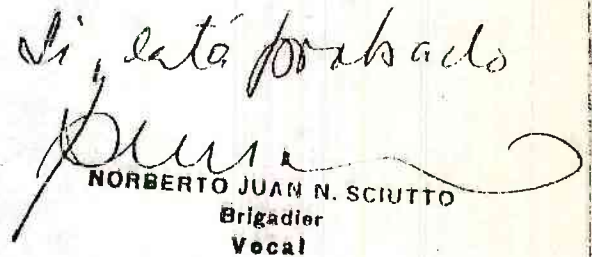 Si, está probado
NORBERTO JUAN N. SCIUTTO
Brigadier
Vocal